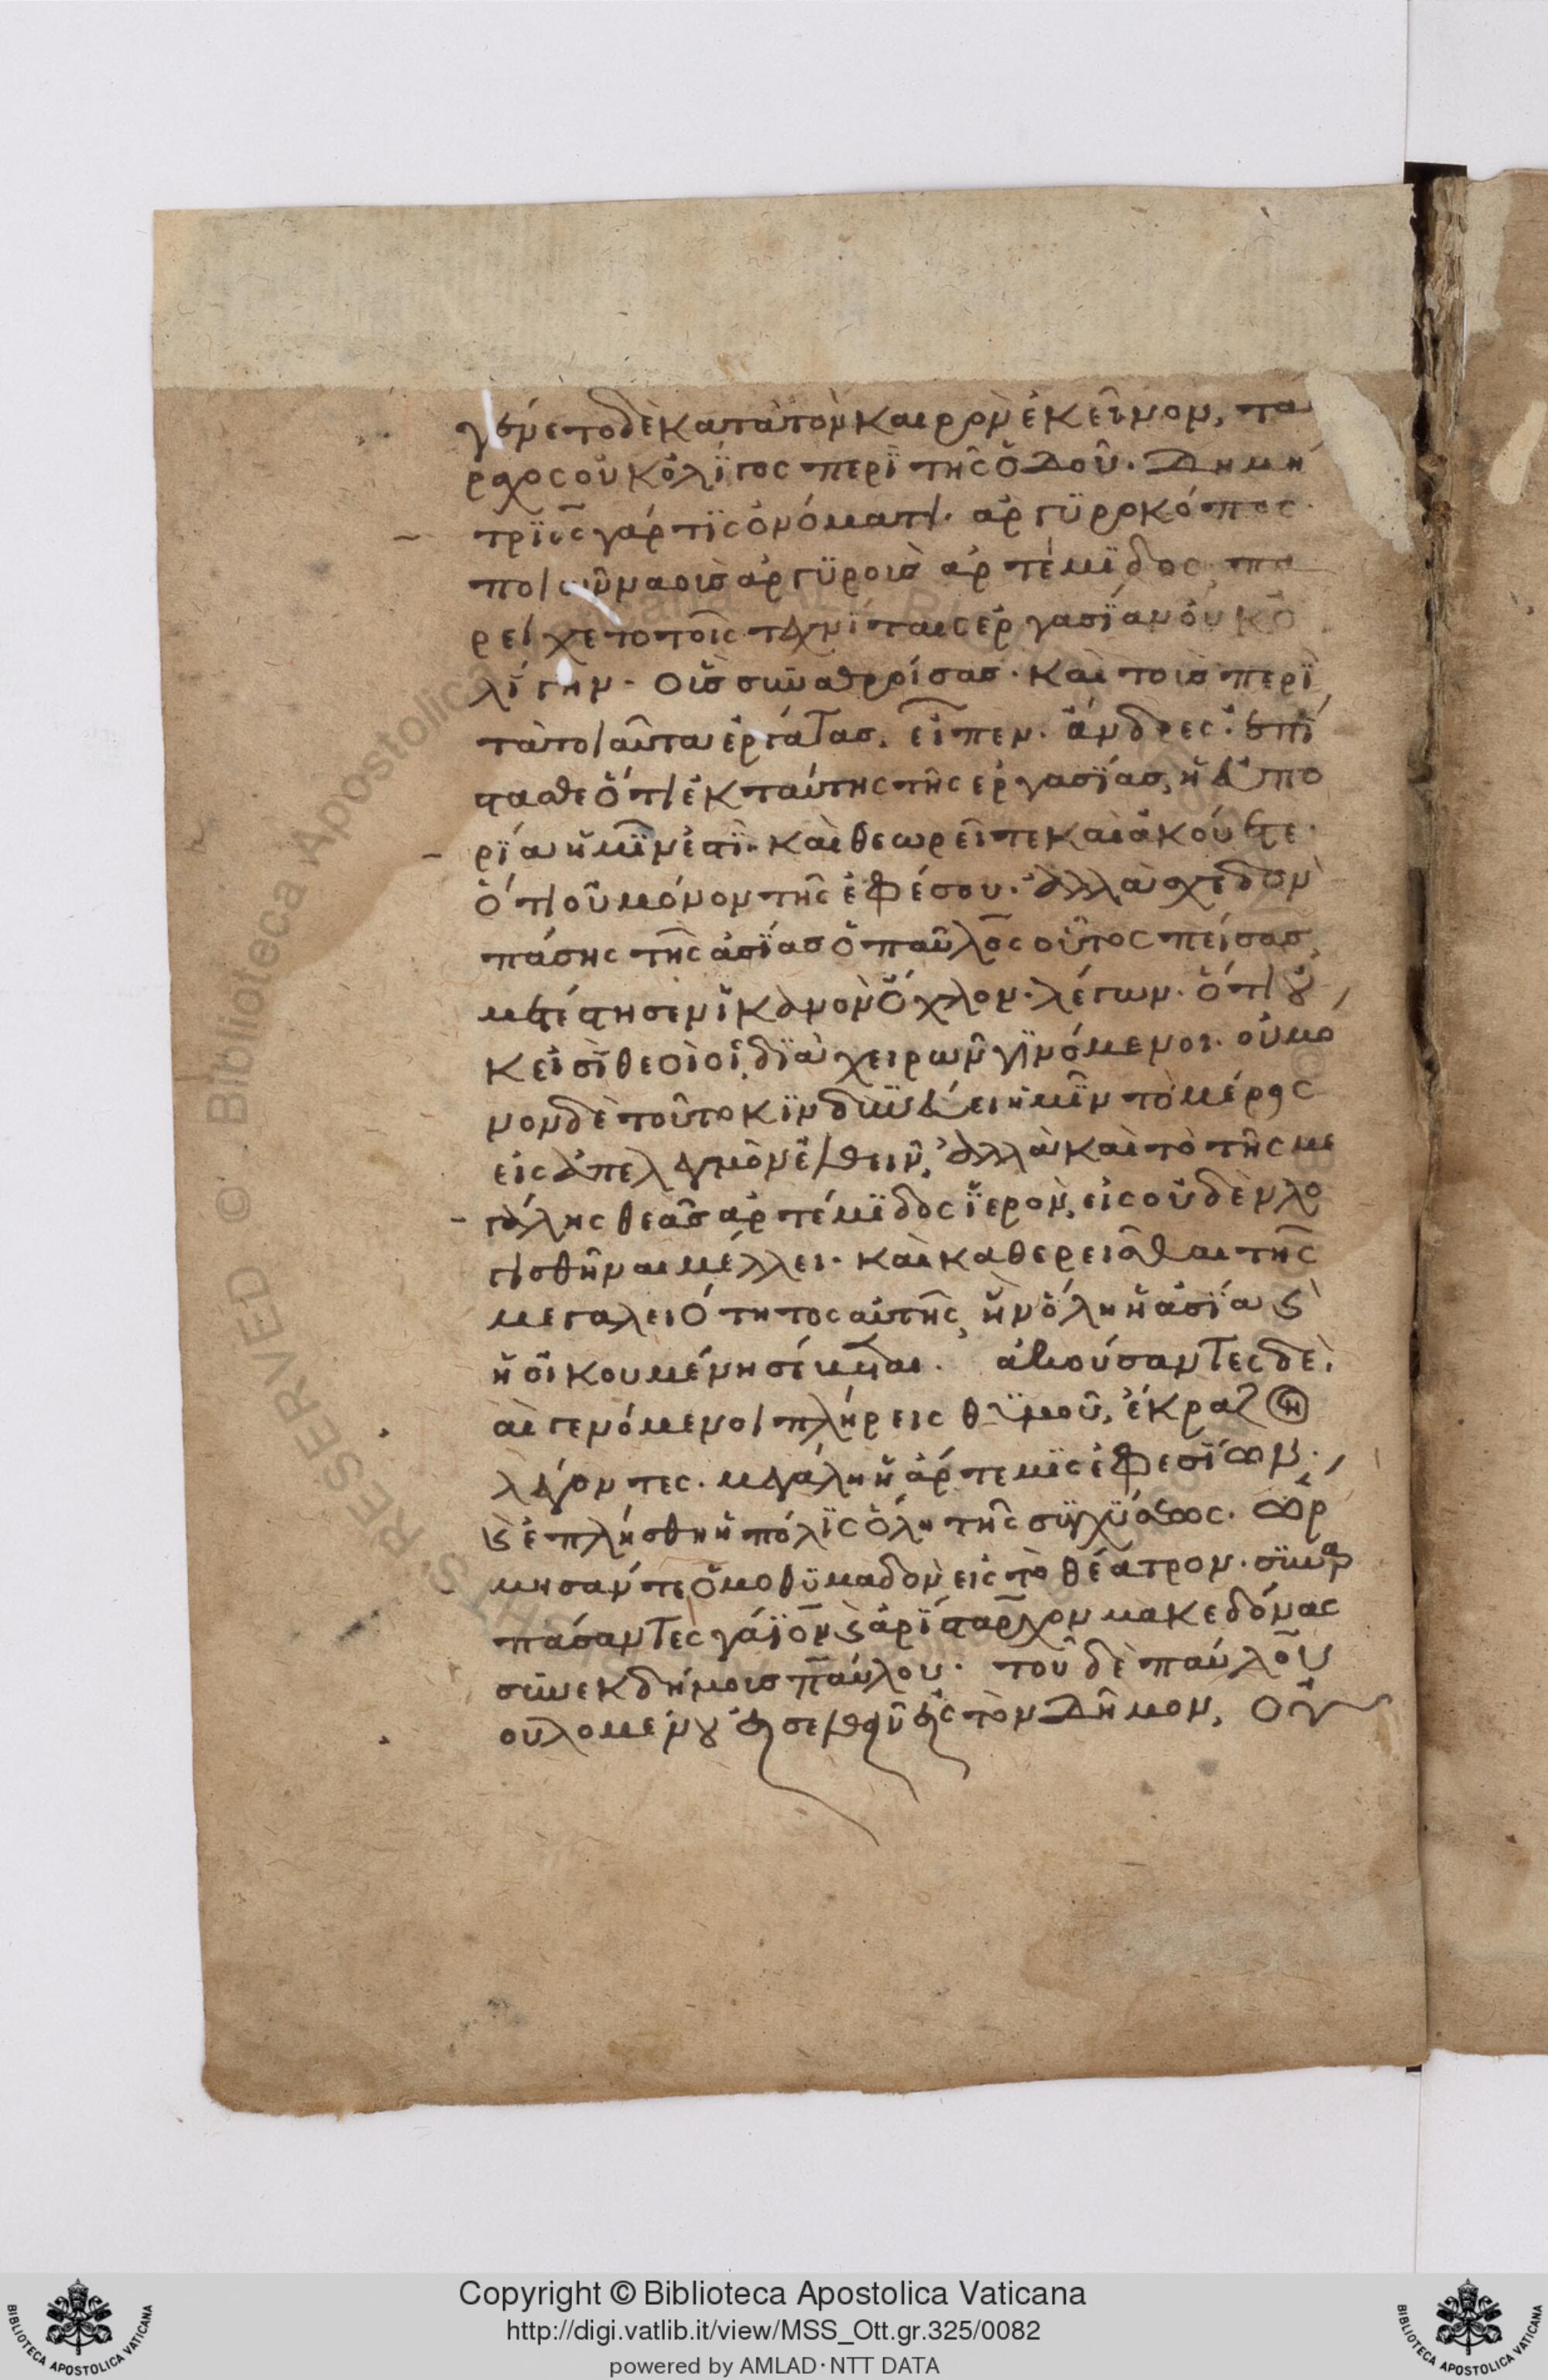 γένετο δὲ κατὰ τὸν καιρὸν ἐκεῖνον, τα
ραχος οὐκ ὀλϊγος περϊ τῆς ὁδοῦ. Δημή
τρϊος γάρ τϊς ὀνόματι. ἀργϋροκόπος.
ποιῶν ναοὺς ἀργϋροὺς ἀρτέμϊδος, πα
ρείχετο τοῖς τεχνίταις ἐργασϊαν οὐκ ὀ
λίγην. οὓς συναθροίσας. καὶ τοὺς περϊ
τὰ τοιαῦτα ἐργάτας, εἶπεν. ἄνδρες. ἐπί
στασθε ὅτι ἐκ ταύτης τῆς ἐργασϊας, ἡ εὐπο
ρϊα ἡμῖν ἐστϊ. καὶ θεωρεῖτε καὶ ἀκούετε.
ὅτι οὐ μόνον τῆς ἐφέσου. ἀλλὰ σχεδὸν
πάσης τῆς ἀσϊας ὁ παῦλος οὗτος πείσας,
μετέστησεν ἱκανὸν ὄχλον. λέγων. ὅτι οὐ
κ εἰσὶ θεοὶ οἱ διὰ χειρῶν γϊνόμενοι. οὐ μό
νον δὲ τοῦτο κϊνδυνεύει ἡμῖν τὸ μέρος
εἰς ἀπελεγμὸν ἐλθεῖν, ἀλλὰ καὶ τὸ τῆς με
γάλης θεᾶς ἀρτέμϊδος ἱερὸν, εἰς οὐδὲν λο
γισθῆναι μέλλει. καὶ καθερεῖσθαι τῆς
μεγαλειότητος αὐτῆς, ἣν ὅλη ἡ ἀσϊα ϗ
ἡ οἰκουμένη σέβεται. ἀκούσαντες δὲ.
καὶ γενόμενοι πλήρεις θϋμοῦ, ἔκραζον
λέγοντες. μεγάλη ἡ ἄρτεμϊς ἐφεσϊων.
ϗ ἐπλήσθη ἡ πόλϊς ὅλη τῆς συγχύσεως. ὥρ
μησάν τε ὁμοθϋμαδὸν εἰς τὸ θέατρον. συναρ
πάσαντες γάϊον ϗ ἀρϊσταρχον μακεδόνας
συνεκδήμους παύλου. τοῦ δὲ παύλου
ουλομένου εἰσελθεῖν εἰς τὸν Δῆμον, οὐκ
Copyright © Biblioteca Apostolica Vaticana
http://digi.vatlib.it/view/MSS_Ott.gr.325/0082
powered by AMLAD·NTT DATA